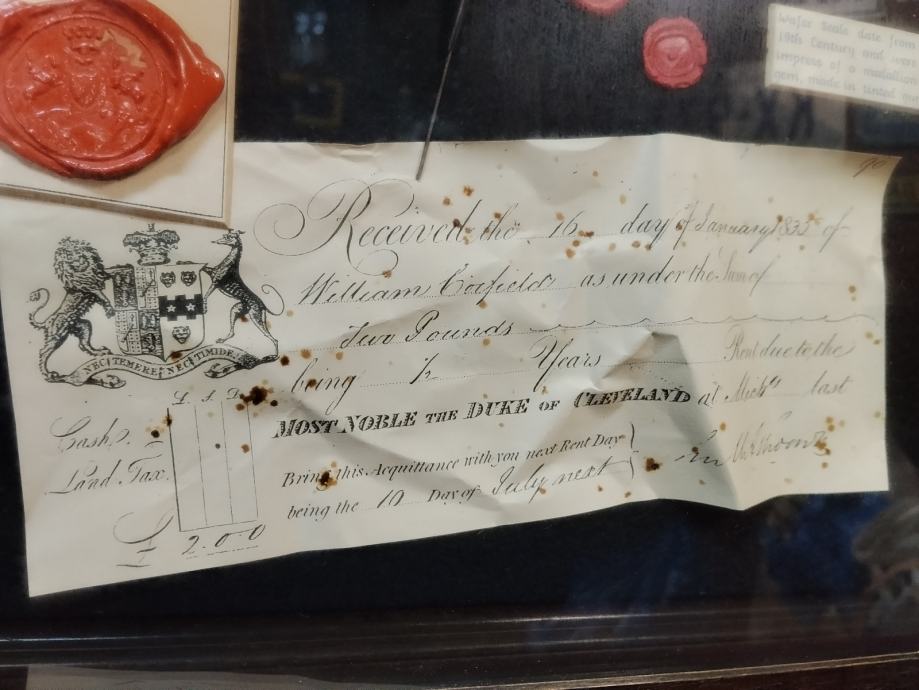 Wafer Seals date from
19th Century and were
impress of a medallion
gem, made in tinted
90
Received the 16 day of January 1835 of
William Caifield as under the Sum of
Two Pounds
being ½ Years Rent due to the
MOST NOBLE THE DUKE OF CLEVELAND at Michs last
NEC TEMERE NEC TIMIDE
£ S D
Cash £
Land Tax
£ 2.0.0
Bring this Acquittance with you next Rent Day
being the 10 Day of July next